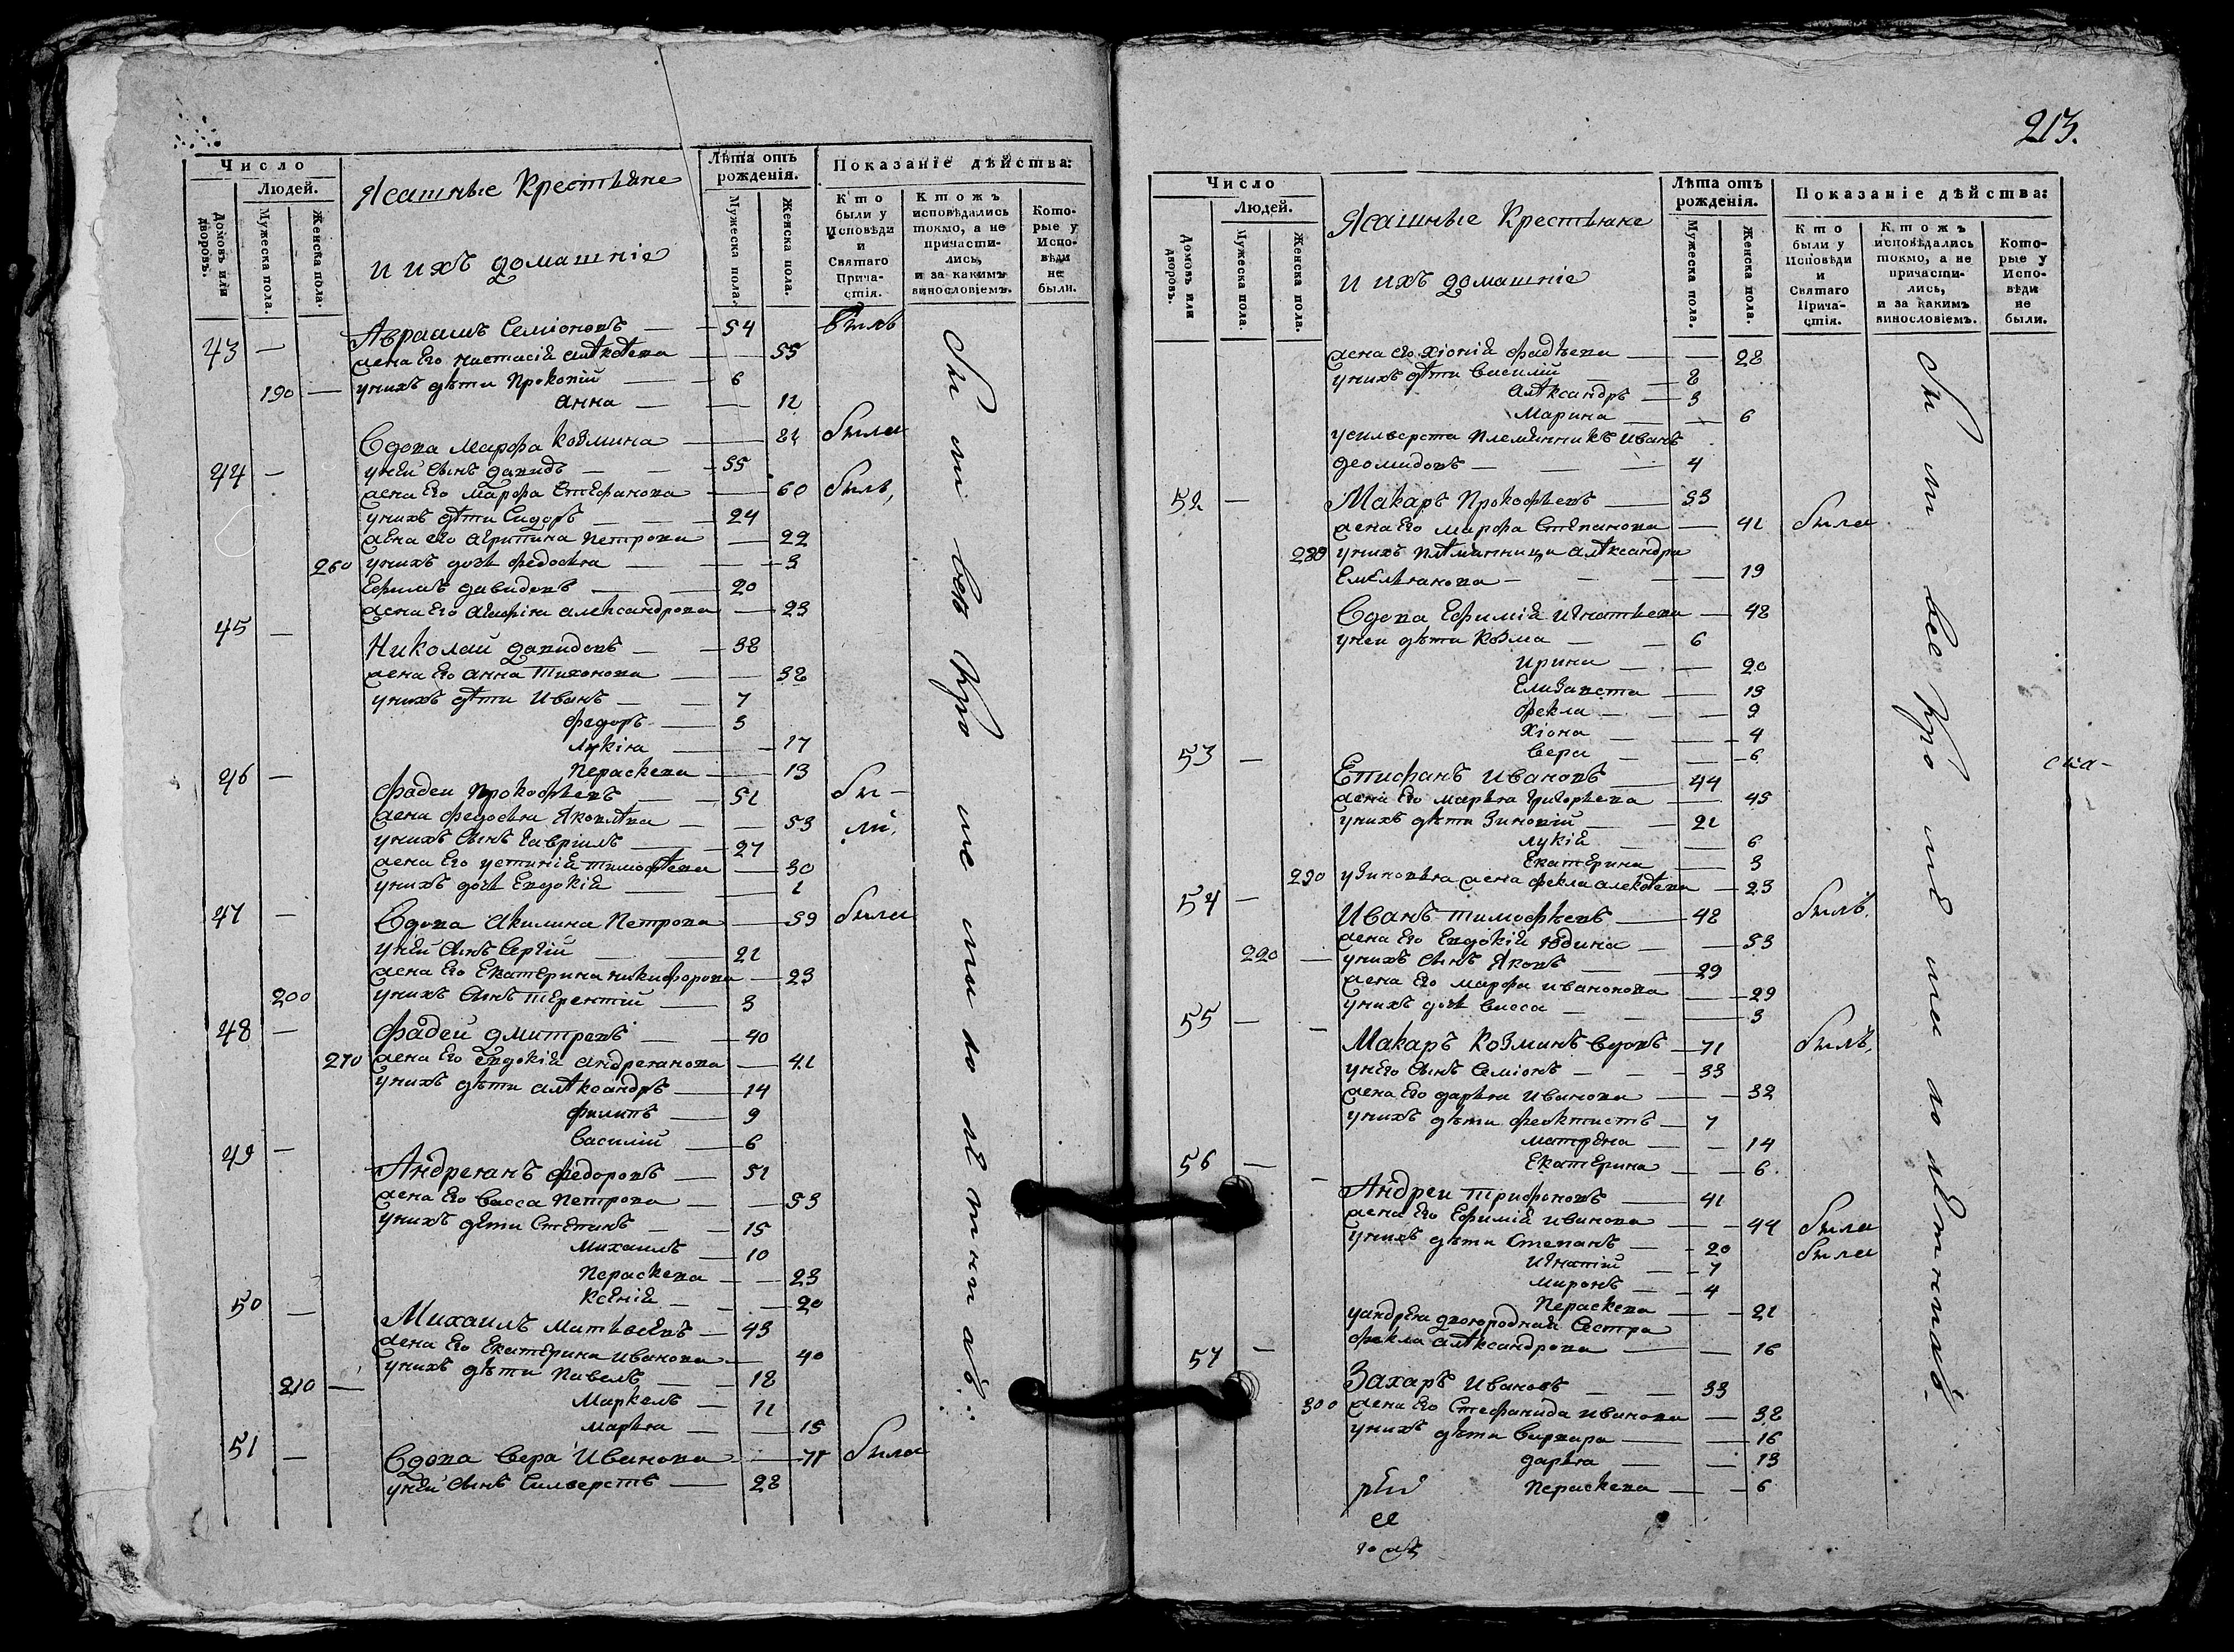 213.
Число
Людей.
Домовъ или дворовъ.
Мужеска пола.
Женска пола.
Ясашные Крестьяне
и ихъ домашніе
Лѣта отъ рожденія.
Мужеска пола.
Женска пола.
Показаніе дѣйства:
Кто были у Исповѣди и Святаго Прича-стія.
Ктожъ исповѣдались токмо, а не причасти-лись, и за какимъ винословіемъ.
Кото-рые у Испо-вѣди не были.
43 — Авраамъ Семіоновъ — 54 былъ
жена Его Настасія Алѣкѣева — 55
190 — унихъ дѣти Прокопій — 6
Анна — 12
Вдова Марфа Козмина — 81 была
44 — уней сынъ Давидъ — 55
жена Его Марфа Стефанова — 60 былъ,
унихъ дѣти Сидоръ — 24
жена его Агрипина Петрова — 22
260 унихъ дочь Федосья — 3
Ефимъ Давидовъ — 20
жена Его Агафія Александрова — 23
45 — Николай Давидовъ — 38
жена Его Анна Тихонова — 32
унихъ дѣти Иванъ — 7
Федоръ — 3
Лукія — 17
Пераскева — 13
46 — Фадеи Прокофьевъ — 51 бы-
жена Федосья Яковлѣва — 53 ли,
унихъ сынъ Гавріилъ — 27
жена Его Устинія Тимофѣева — 30
унихъ дочь Евдокія — 1
47 — Вдова Акилина Петрова — 59 была
уней сынъ Сергій — 21
жена Его Екатерина Никифорова — 23
200 унихъ сынъ Терентій — 3
48 — Фадей Дмитревъ — 40
270 жена Его Евдокія Андреянова — 41
унихъ дѣти Алѣксандръ — 14
Филипъ — 9
Василій — 6
49 — Андреянъ Федоровъ — 51
жена Его Васса Петрова — 53
унихъ дѣти Стѣпанъ — 15
Михаилъ — 10
Пераскева — 23
Ксенія — 20
50 — Михаилъ Матвѣевъ — 43
жена Его Екатерина Иванова — 40
210 — унихъ дѣти Павелъ — 18
Маркелъ — 11
Марья — 15
51 — Вдова Вера Иванова — 71 была
уней сынъ Силверстъ — 28
Число
Людей.
Домовъ или дворовъ.
Мужеска пола.
Женска пола.
Ясашные Крестьяне
и ихъ домашніе
Лѣта отъ рожденія.
Мужеска пола.
Женска пола.
Показаніе дѣйства:
Кто были у Исповѣди и Святаго Прича-стія.
Ктожъ исповѣдались токмо, а не причасти-лись, и за какимъ винословіемъ.
Кото-рые у Испо-вѣди не были.
жена его Хіонія Фадѣева — 28
унихъ дѣти Василій — 8
Алѣксандръ — 3
Марина — 6
уСилверста племянникъ Иванъ
Деомидовъ — 4
52 — Макаръ Прокофьевъ — 33
жена Его Марфа Степанова — 41 была
280 унихъ племянница Алѣксандра
Емельянова — 19
Вдова Ефимія Игнатьева — 48
уней дѣти Козма — 6
Ирина — 20
Елизавета — 13
Фекла — 9
Хіона — 4
Вера — 6
53 — Епифанъ Ивановъ — 44
жена Его Марья Григорьева — 45
унихъ дѣти Зиновій — 21
Лукія — 6
Екатерина — 3
290 уЗиновья жена Фекла Алексѣева — 23
54 — Иванъ Тимофьевъ — 48 былъ,
жена Его Евдокія Юдина — 53
220 — унихъ сынъ Яковъ — 29
жена Его Марфа Иванонова — 29
унихъ дочь Васса — 3
55 — Макаръ Козминъ вдовъ — 71 былъ,
унЕго сынъ Семіонъ — 33
жена Его Дарья Иванова — 32
унихъ дѣти Феоктистъ — 7
Матрена — 14
Екатерина — 6
56 — Андреи Трифоновъ — 41
жена Его Ефимія Иванова — 44 была
унихъ дѣти Степанъ — 20 были
Игнатій — 7
Миронъ — 4
Пераскева — 21
уАндрея двоюродная сестра
Фекла Алѣксандрова — 16
57 — Захаръ Ивановъ — 33
300 жена Его Стефанида Иванова — 38
унихъ дѣти Варвара — 16
Дарья — 13
Пераскева — 6